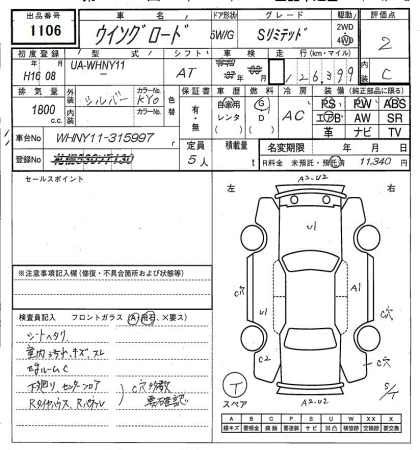 出品番号 車名 ドア形状 グレード 駆動 評価点
1106 ウイングロード 5W/G Sリミテッド 2WD 4WD 2
初度登録 型式 シフト 車検 走行(km・マイル) 内装
H16年08月 UA-WHNY11 — AT 126,399 C
排気量 外装 シルバー カラーNo. KY0 色替 保証書 車歴 燃料 冷房 装備(純正部品に限る)
1800 c.c. 内装 カラーNo. 有・無 自家用 レンタ ( ) G D ( ) AC PS PW ABS
エアB AW SR
革 ナビ TV
車台No WHNY11-315997 r 定員 積載量 名変期限 年 月 日
登録No 5人 t R料金 未預託・預託済 11,340円
セールスポイント
左 右
A2.U2
U1
C穴
A1
C2
C穴
S/T
T
スペア
A2.U2
※注意事項記入欄(修復・不具合箇所および状態等)
検査員記入 フロントガラス(A)飛石、×要ス)
シートヘタリ
室内汚れ、キズ、スレ
下廻り、センターフロア
C穴多数
要確認
A B C P S U W X XX X
線キズ 要板金 腐蝕 要塗装 サビ 凹凸 補修跡 交換跡 要交換